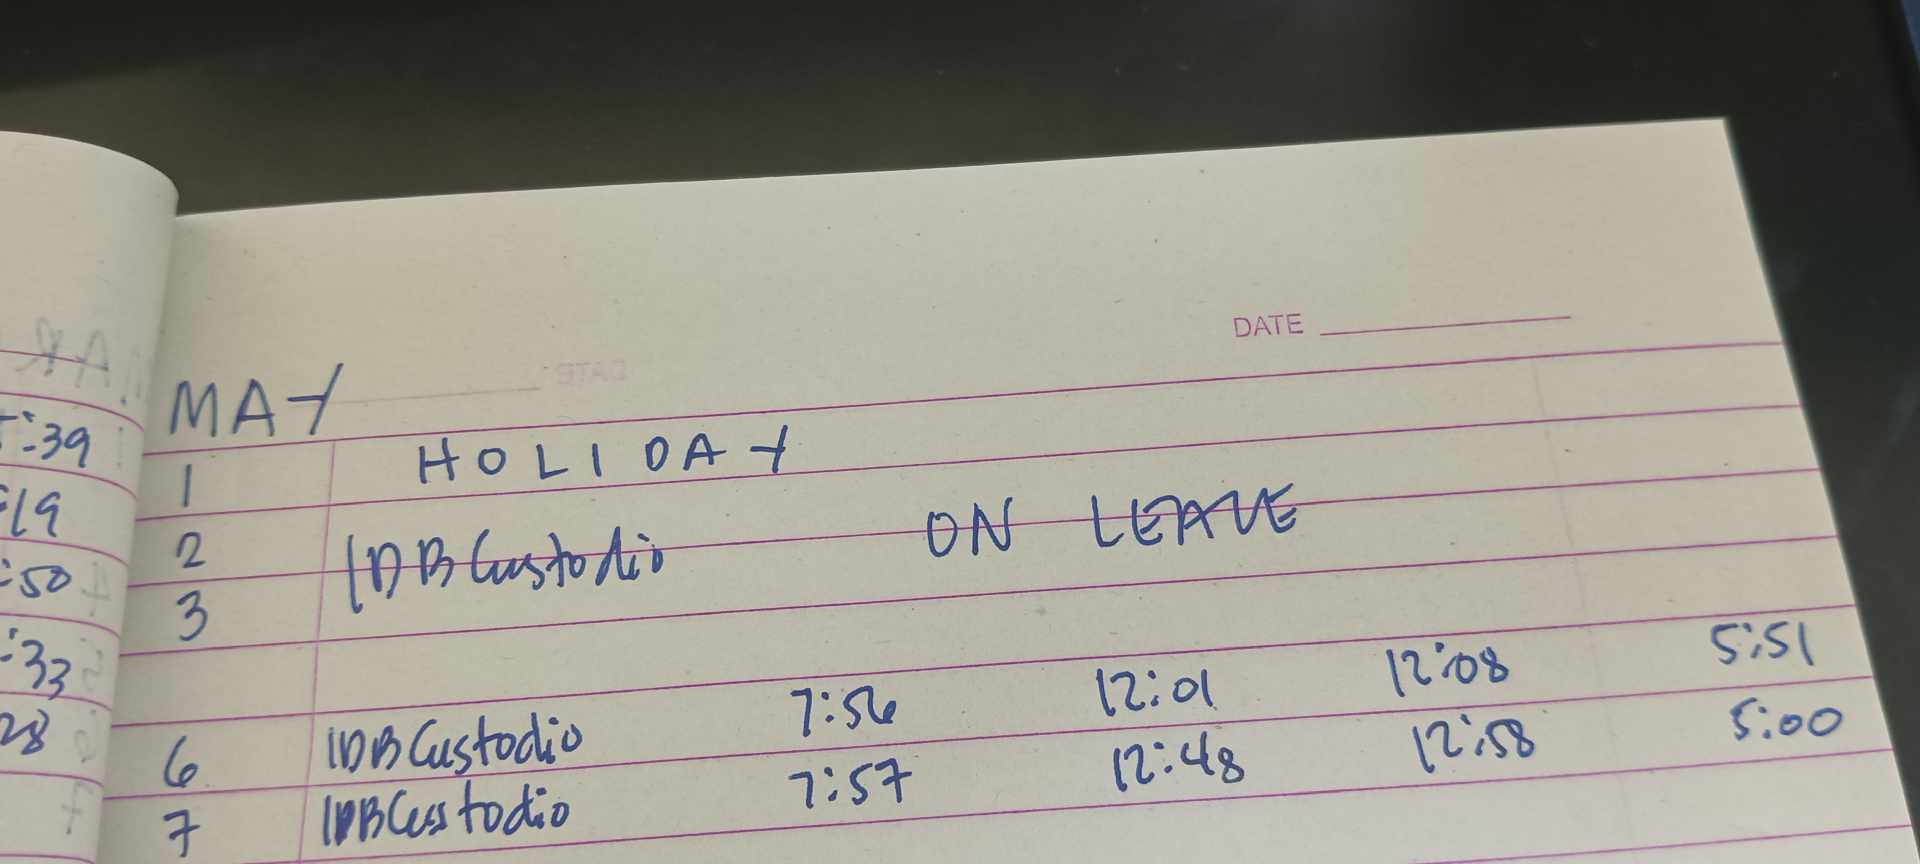 DATE
MAY
1 HOLIDAY
2 IDBCustodio ON LEAVE
3
6 IDBCustodio 7:56 12:01 12:08 5:51
7 IDBCustodio 7:57 12:48 12:58 5:00
:39
:19
:50
:33
28